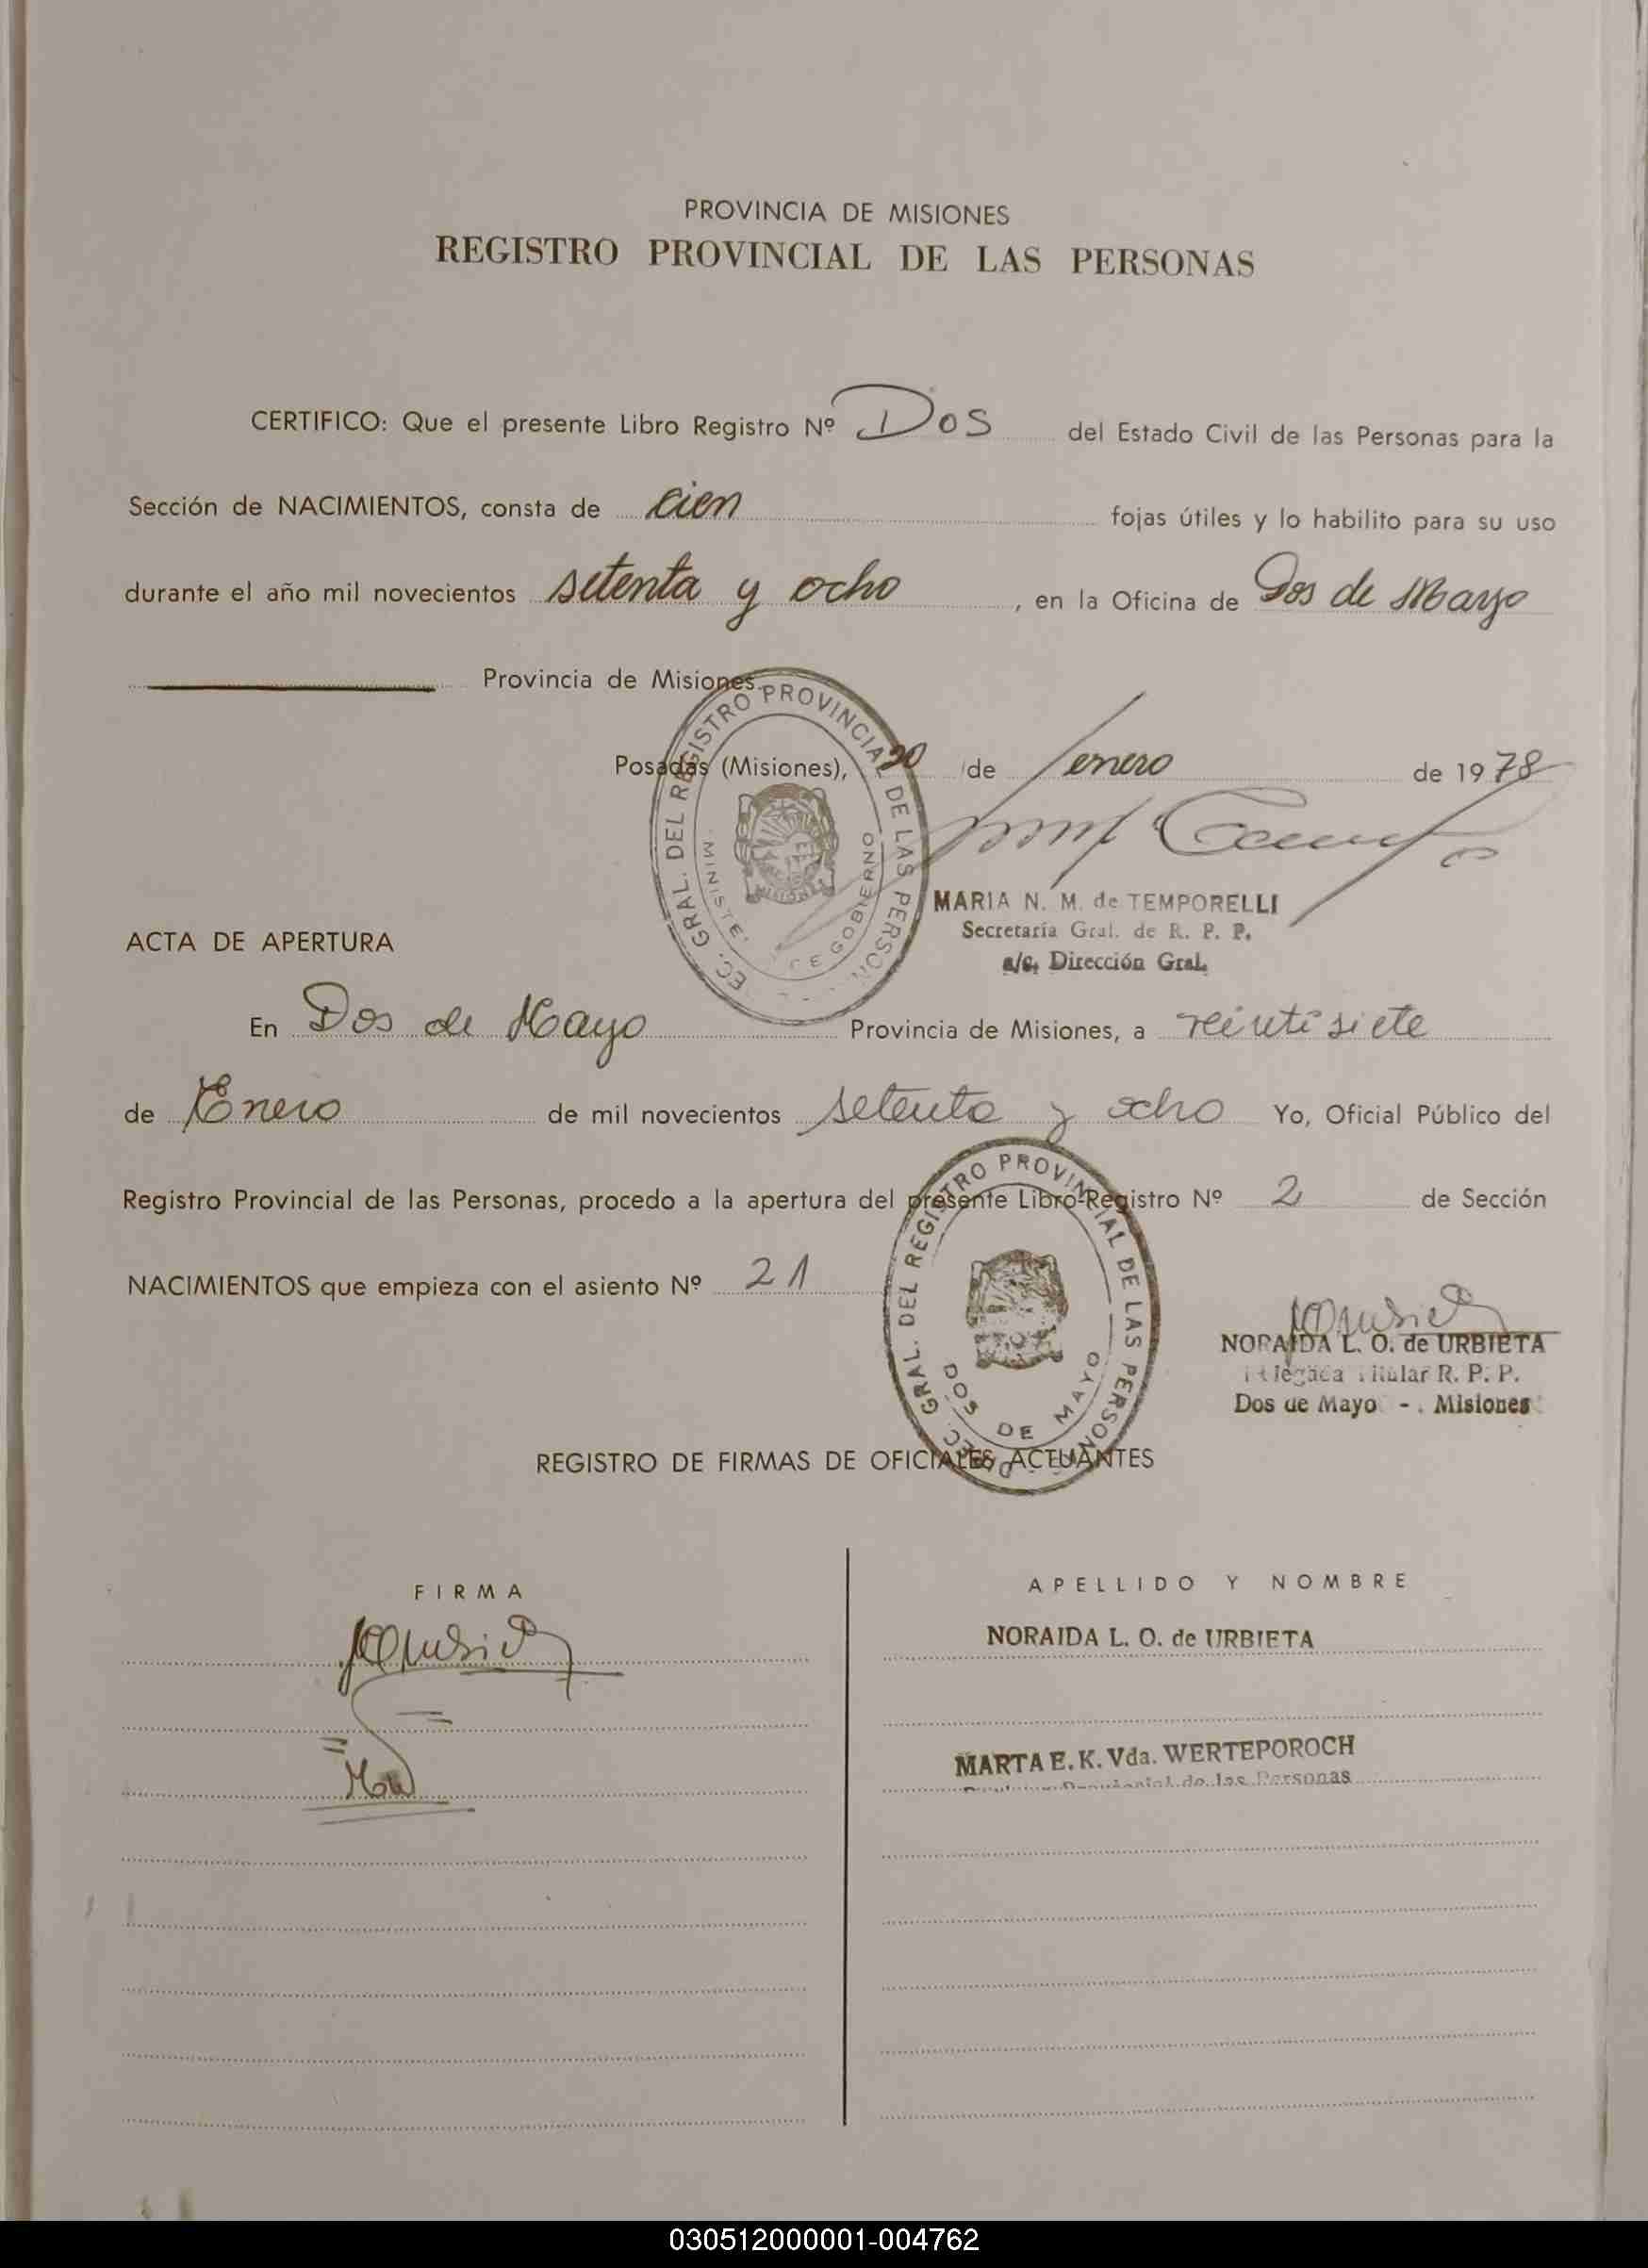 PROVINCIA DE MISIONES
REGISTRO PROVINCIAL DE LAS PERSONAS
CERTIFICO: Que el presente Libro Registro Nº Dos del Estado Civil de las Personas para la
Sección de NACIMIENTOS, consta de cien fojas útiles y lo habilito para su uso
durante el año mil novecientos setenta y ocho, en la Oficina de Dos de Mayo
Provincia de Misiones.
Posadas (Misiones), de enero de 1978
MARIA N. M. de TEMPORELLI
Secretaria Gral. de R. P. P.
a/c. Dirección Gral.
GRAL. DEL REGISTRO PROVINCIAL DE LAS PERSON
GOBIERNO
ACTA DE APERTURA
En Dos de Mayo Provincia de Misiones, a veintisiete
de Enero de mil novecientos setenta y ocho Yo, Oficial Público del
Registro Provincial de las Personas, procedo a la apertura del presente Libro-Registro Nº 2 de Sección
NACIMIENTOS que empieza con el asiento Nº 21
GRAL. DEL REGISTRO PROVINCIAL DE LAS PERSON
DOS DE MAYO
NORAIDA L. O. de URBIETA
R. P. P.
Dos de Mayo - Misiones
REGISTRO DE FIRMAS DE OFICIALES ACTUANTES
FIRMA
APELLIDO Y NOMBRE
NORAIDA L. O. de URBIETA
MARTA E. K. Vda. WERTEPOROCH
de las Personas
030512000001-004762